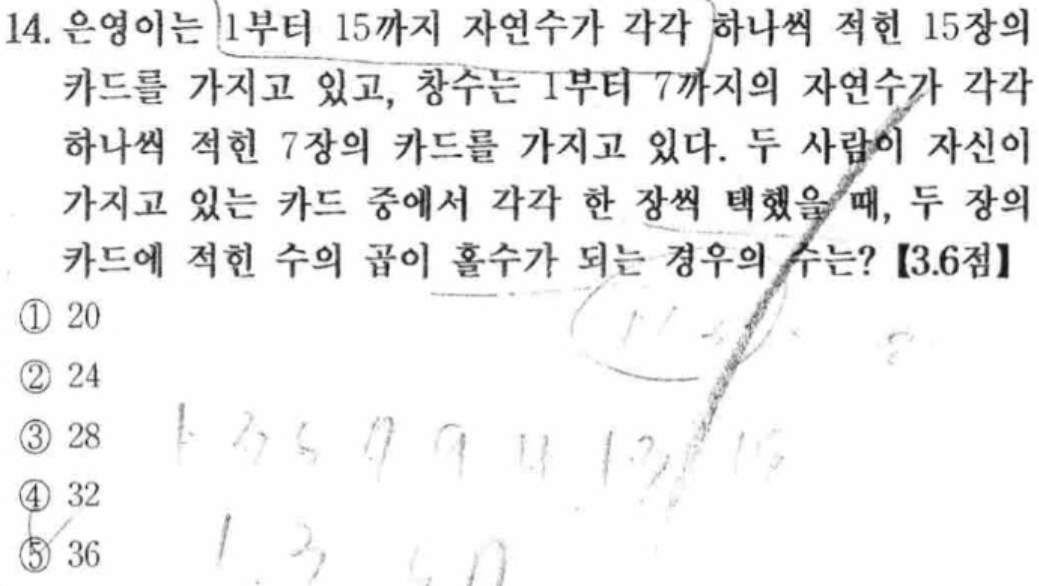 14. 은영이는 1부터 15까지 자연수가 각각 하나씩 적힌 15장의
카드를 가지고 있고, 창수는 1부터 7까지의 자연수가 각각
하나씩 적힌 7장의 카드를 가지고 있다. 두 사람이 자신이
가지고 있는 카드 중에서 각각 한 장씩 택했을 때, 두 장의
카드에 적힌 수의 곱이 홀수가 되는 경우의 수는? 【3.6점】
① 20
② 24
③ 28
1 3 5 7 9 11 13 15
④ 32
⑤ 36
1 3 5 7